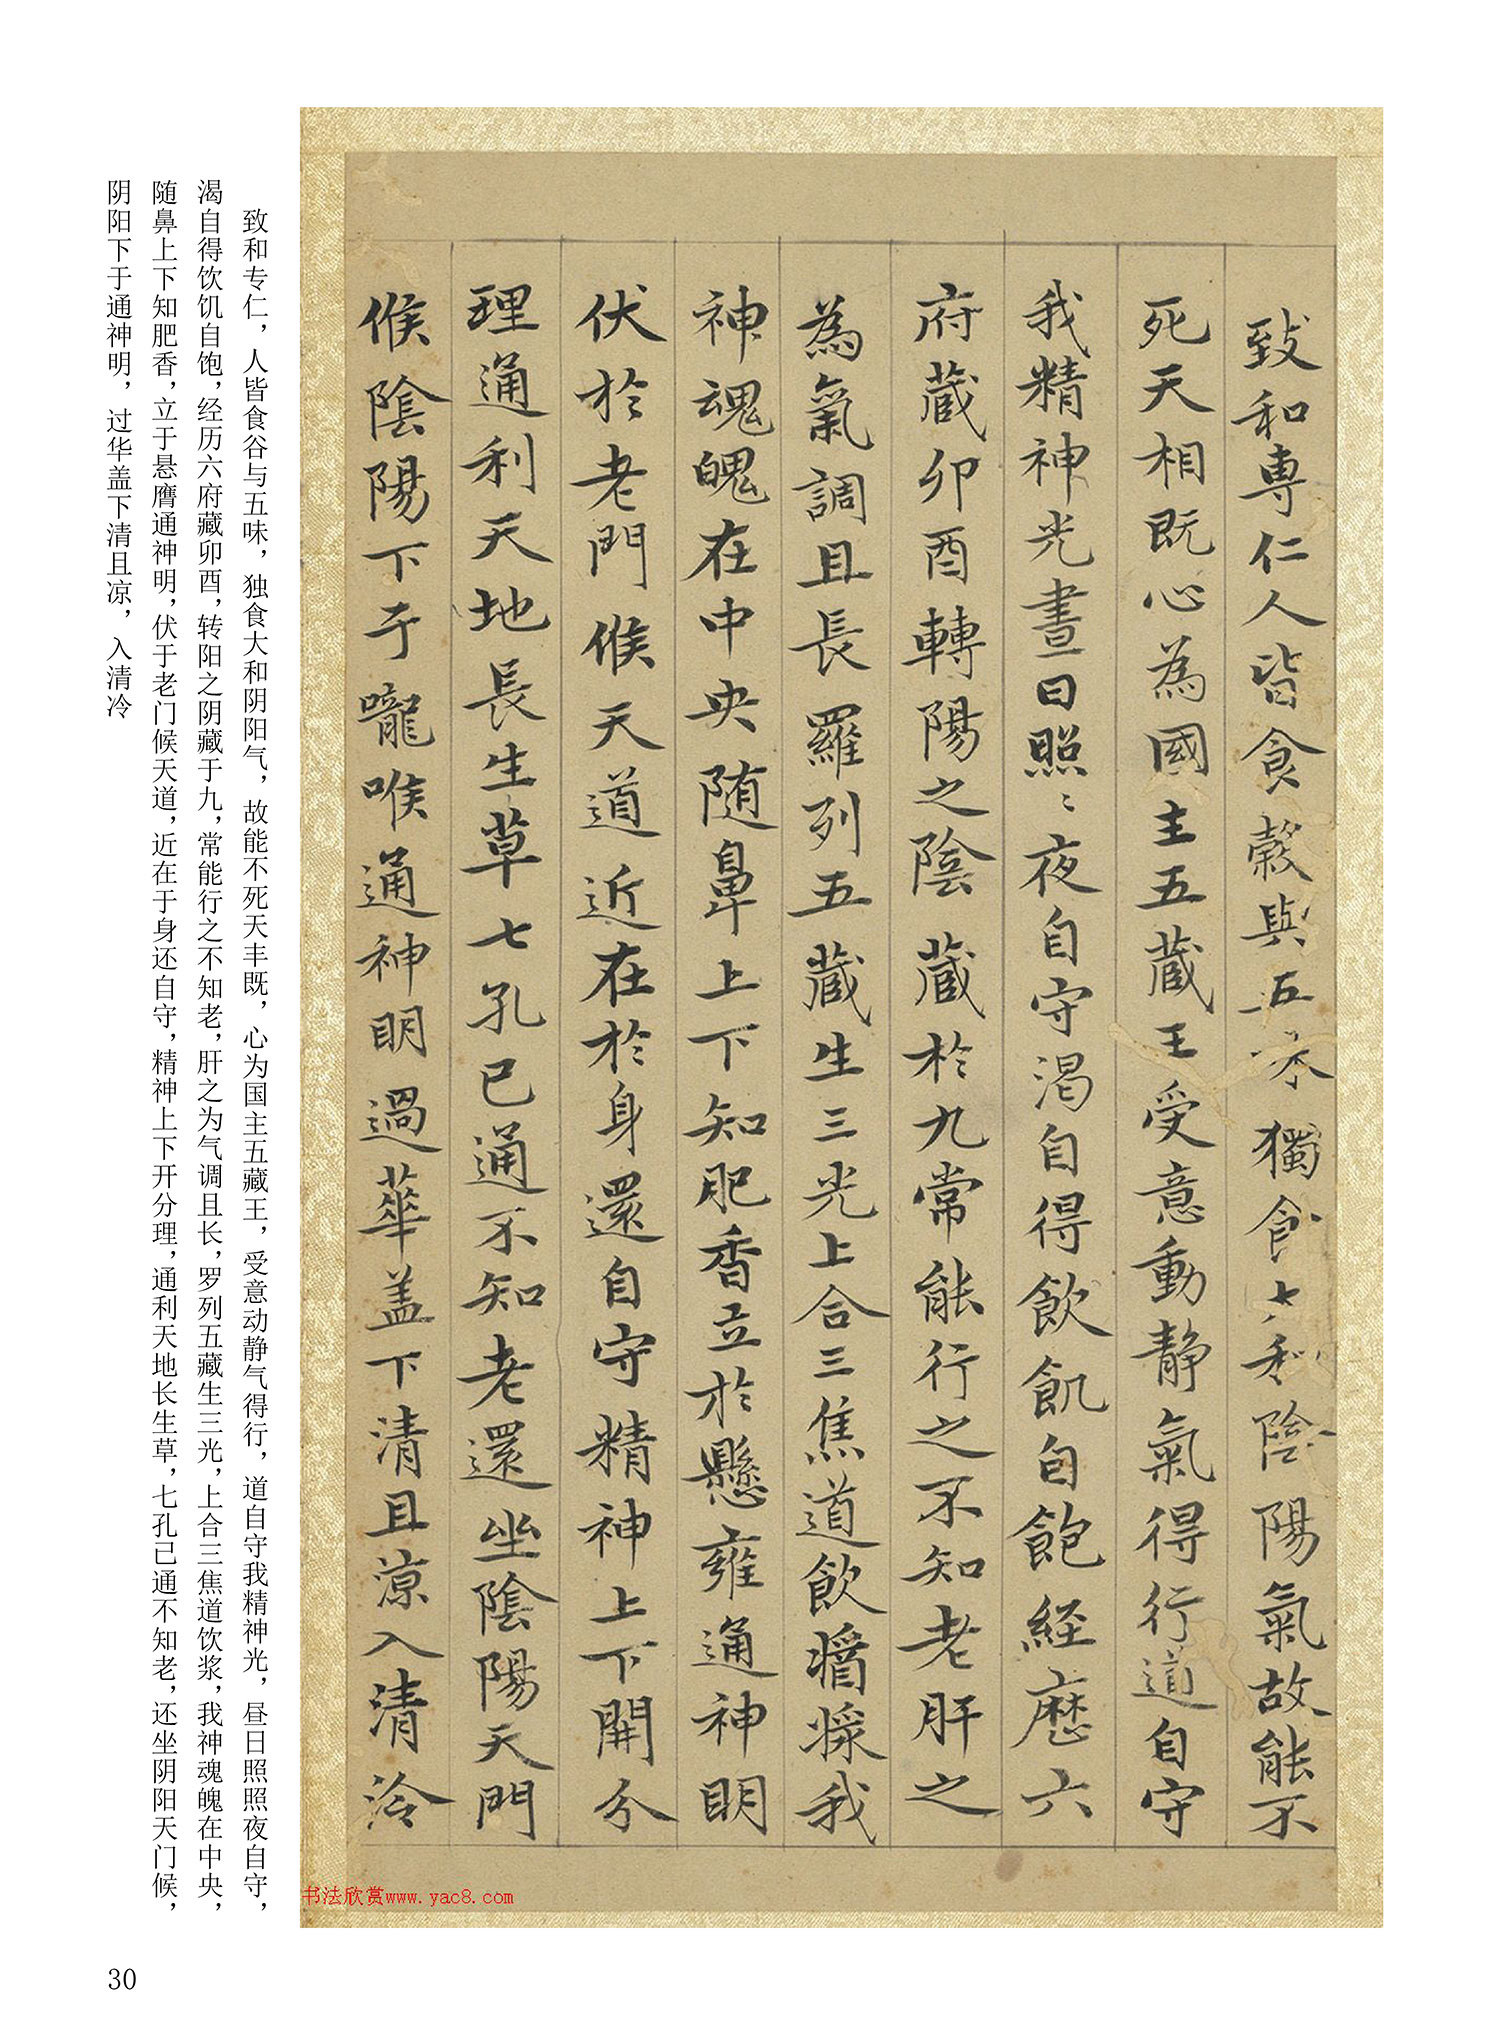 致和專仁人皆食穀與五味獨食大和陰陽氣故能不
死天相既心為國主五藏王受意動静氣得行道自守
我精神光晝日照〻夜自守渴自得飲飢自飽経歷六
府藏卯酉轉陽之陰藏於九常能行之不知老肝之
為氣調且長羅列五藏生三光上合三焦道飲醬漿我
神魂魄在中央随鼻上下知肥香立於懸雍通神明
伏於老門候天道近在於身還自守精神上下開分
理通利天地長生草七孔已通不知老還坐陰陽天門
候陰陽下于嚨喉通神明過華盖下清且涼入清泠
致和专仁，人皆食谷与五味，独食大和阴阳气，故能不死天丰既，心为国主五藏王，受意动静气得行，道自守我精神光，昼日照照夜自守，
渴自得饮饥自饱，经历六府藏卯酉，转阳之阴藏于九，常能行之不知老，肝之为气调且长，罗列五藏生三光，上合三焦道饮浆，我神魂魄在中央，
随鼻上下知肥香，立于悬膺通神明，伏于老门候天道，近在于身还自守，精神上下开分理，通利天地长生草，七孔已通不知老，还坐阴阳天门候，
阴阳下于通神明，过华盖下清且凉，入清冷
书法欣赏www.yac8.com
30